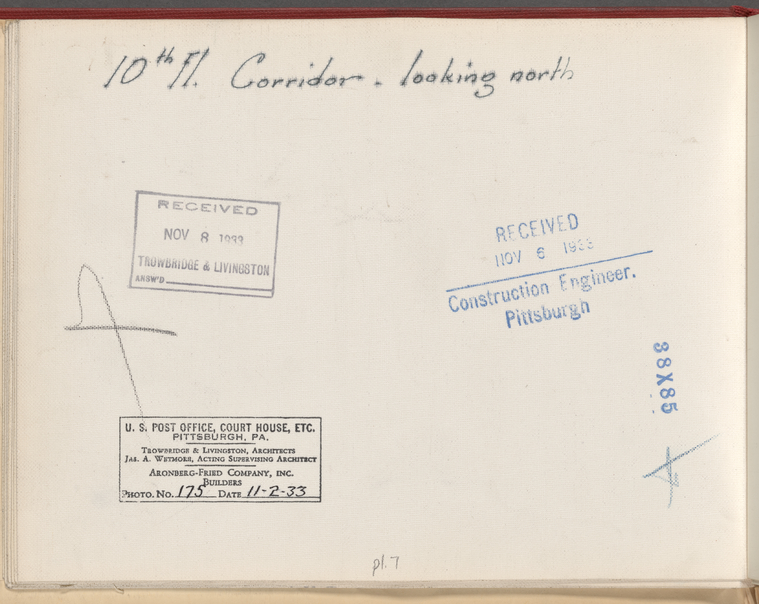 10th fl. Corridor - looking north
RECEIVED
NOV 8 1933
TROWBRIDGE & LIVINGSTON
ANSW'D
RECEIVED
NOV 6 1933
Construction Engineer.
Pittsburgh
38X85
U. S. POST OFFICE, COURT HOUSE, ETC.
PITTSBURGH, PA.
TROWBRIDGE & LIVINGSTON, ARCHITECTS
JAS. A. WETMORE, ACTING SUPERVISING ARCHITECT
ARONBERG-FRIED COMPANY, INC.
BUILDERS
PHOTO. NO. 175 DATE 11-2-33
pl. 7